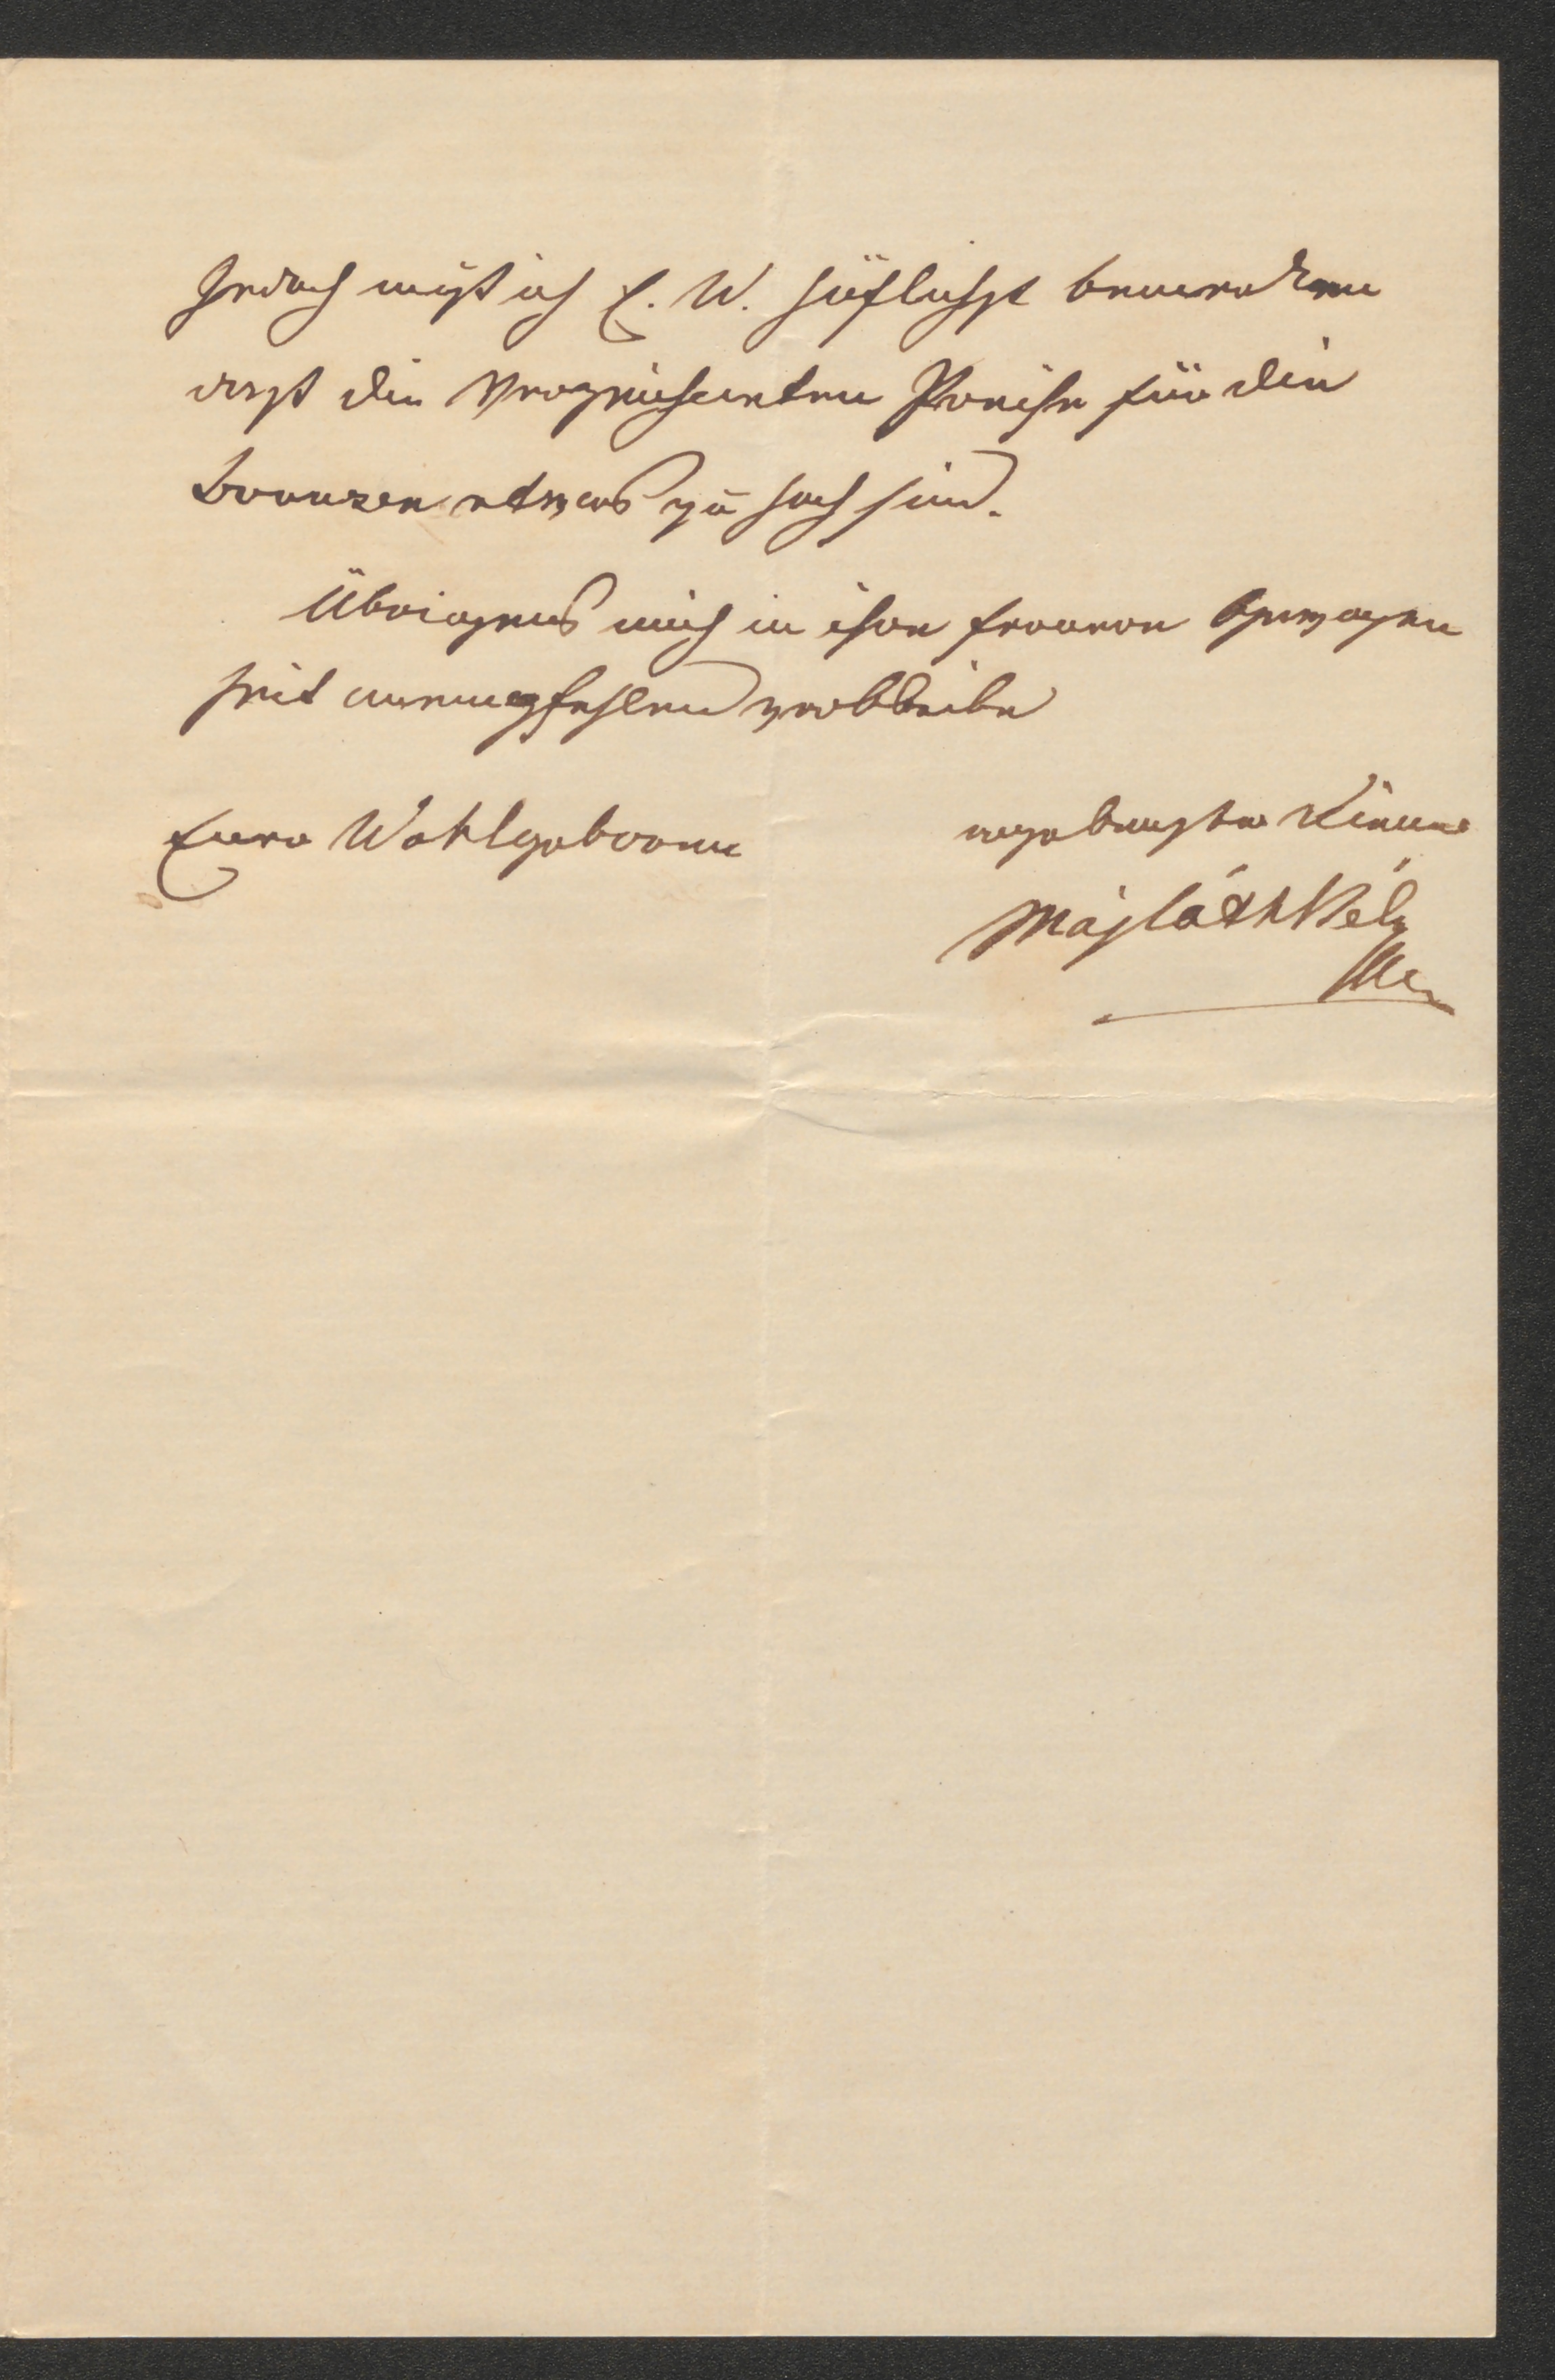 Jedoch muß ich E. W. höflichst bemerken
daß die verzeichneten Preise für die
Bronzen etwas zu hoch sind.
Übrigens mich in ihre ferneren Gewogen
heit anempfehlend verbleibe
Euer Wohlgeboren
ergebenster Diener
Majláth Béla